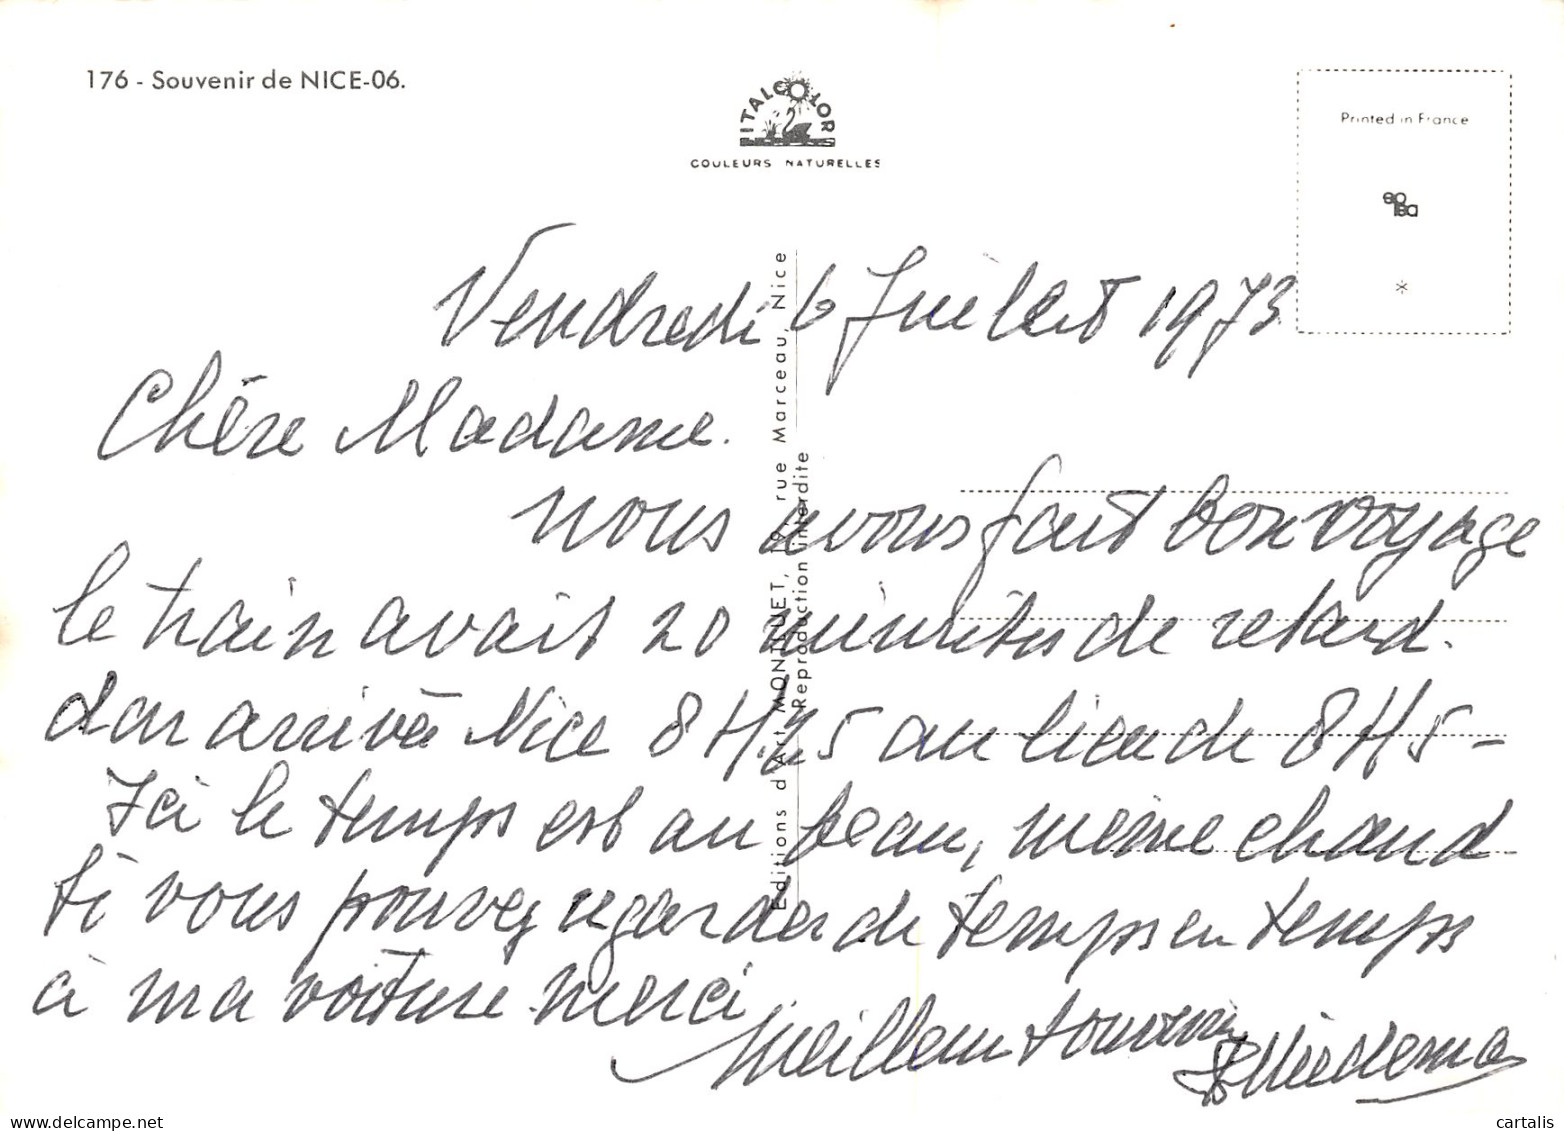 176 - Souvenir de NICE-06.
ITALCOLOR
COULEURS NATURELLES
Printed in France
*
Editions d'Art MONTLUET, 19 rue Marceau, Nice
Reproduction interdite
Vendredi 6 Juillet 1973
Chère Madame.
nous avons fait bon voyage
le train avait 20 minutes de retard.
arrivée Nice 8H.25 au lieu de 8H5 -
Ici le temps est au beau, même chaud
si vous pouvez regarder de temps en temps
à ma voiture. merci
Meilleur souvenir